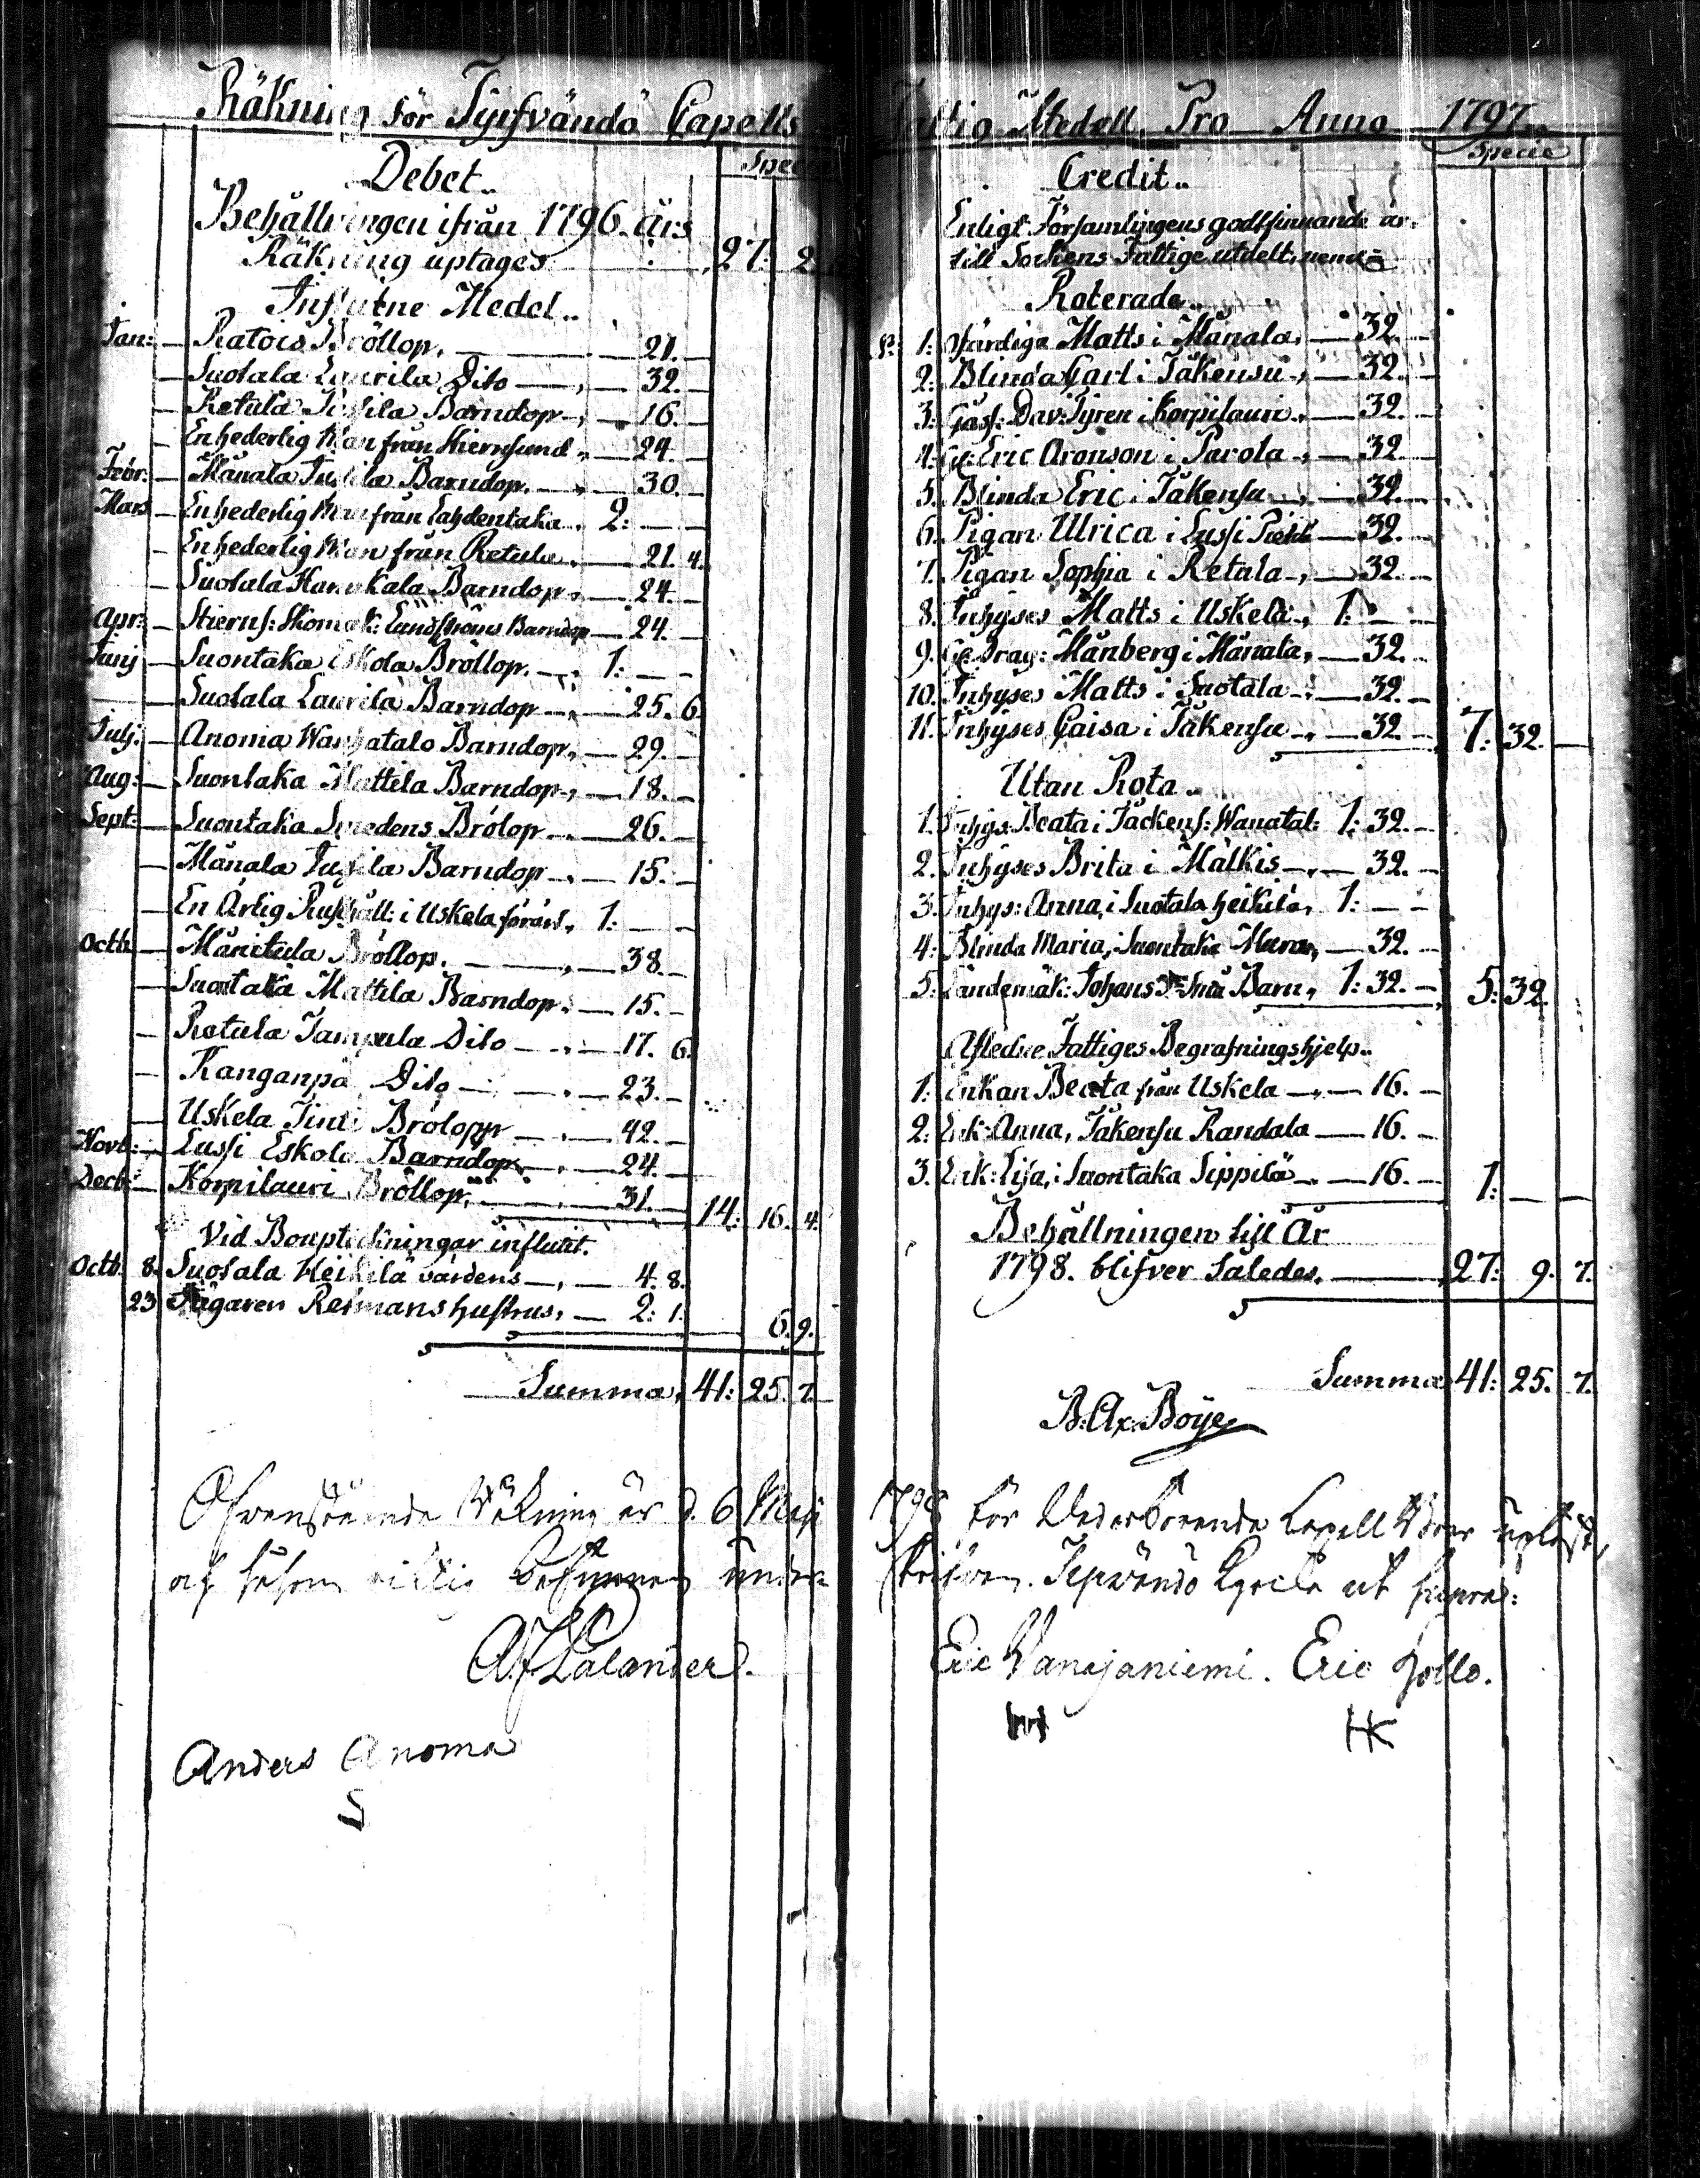 Räkning för Tyrfvändö Capells
Debet.
Specie
Behållningen ifrån 1796. års
Räkning uptages 27: 2
Influtne Medel..
Jan: — Ratois Bröllop. — 21. —
— Suotala Laurila Dito —, — 32. —
— Retula Jussila Barndop —, — 16. —
— En hederlig Man från Hiernsund, — 24. —
Febr: — Mänala Jussila Barndop. —, — 30. —
Mars — En hederlig Man från Lahdentaka, 2: — —
— En hederlig Man från Retula, — 21. 4.
— Suotala Barndop, — 24. —
Apr: — Stiernf: Skomak: Landströms Barndop — 24. —
Junj — Suontaka Eskola Bröllop. —, 1: — —
— Suotala Laurila Barndop —, — 25. 6.
Julj. — Anomia Wanhatalo Barndop, — 29. —
Aug: — Suontaka Mattila Barndop, — 18. —
Sept: — Suontaka Smedens Brölop —, — 26. —
— Mänala Jussila Barndop —, — 15. —
— En Ärlig Rusthåll: i Uskela förärt, 1: — —
Octb. — Mänitula Bröllop. —, — 38. —
— Suontaka Mattila Barndop, — 15. —
— Retula Jampula Dito —, — 17. 6.
— Kanganpä Dito —, — 23. —
— Uskela Brölopp —, — 42. —
Novb: — Lussi Eskola Barndop, —, — 24. —
Decb: — Korpilauri Bröllop, —, — 31. — 14: 16. 4.
Vid Bouptekningar influtit.
Octb. 8. Suotala Heikilä värdens —, — 4. 8.
23 Jägaren Reimans hustrus, — 2: 1. 6. 9.
Summa, 41: 25. 7.
Ofvenstående Räkning är d. 6 Maji
och såsom riktig befunnen under-
A J Lalander.
Anders Anoma
Fattig Medell, Pro Anno 1797..
Specie
Credit..
Enligt Församlingens godtfinnande är
till Sockens Fattige utdelt, neml:
Roterade..
1: Matts i Mänala, — 32. —
2: Blinda Carl i Jäkensu —, — 32. —
3: Gass: Dav: Tyren i Korpilauri, — 32. —
4: Eric Aronson i Parola —, — 32. —
5. Blinda Eric i Jäkensu —, — 32. —
6. Pigan Ulrica i Lussi — 32. —
7. Pigan Sophia i Retula —, — 32. —
8. Inhyses Matts i Uskela, 1: — —
9. Drag: Månberg i Mänala, — 32. —
10. Inhyses Matts i Suotala —, — 32. —
11. Inhyses Caisa i Jäkensu —, — 32. — 7: 32. —
Utan Rota..
1. Inhys: Beata i Jäckens: Wanatal: 1: 32. —
2. Inhyses Brita i Mälkis —, — 32. —
3. Inhys: Anna, i Suotala Heikilä, 1: — —
4: Blinda Maria, i Suontaka — 32. —
5: Johans 3:ne små Barn, 1: 32. — 5: 32.
Afledne Fattiges Begrafningshjelp..
1: Enkan Beata från Uskela —, — 16. —
2: Enk: Anna, Jäkensu Randala — 16. —
3. Enk: Lisa, i Suontaka Sippilä — — 16. — 1: — —
Behållningen till År
1798. blifver Således, — 27: 9. 7.
Summa 41: 25. 7.
B: Ax: Böye
1798 för Vederbörande Capell Boer upläst,
skrifven. ut supra:
Eric Vanajaniemi. Eric Hollo.
HK